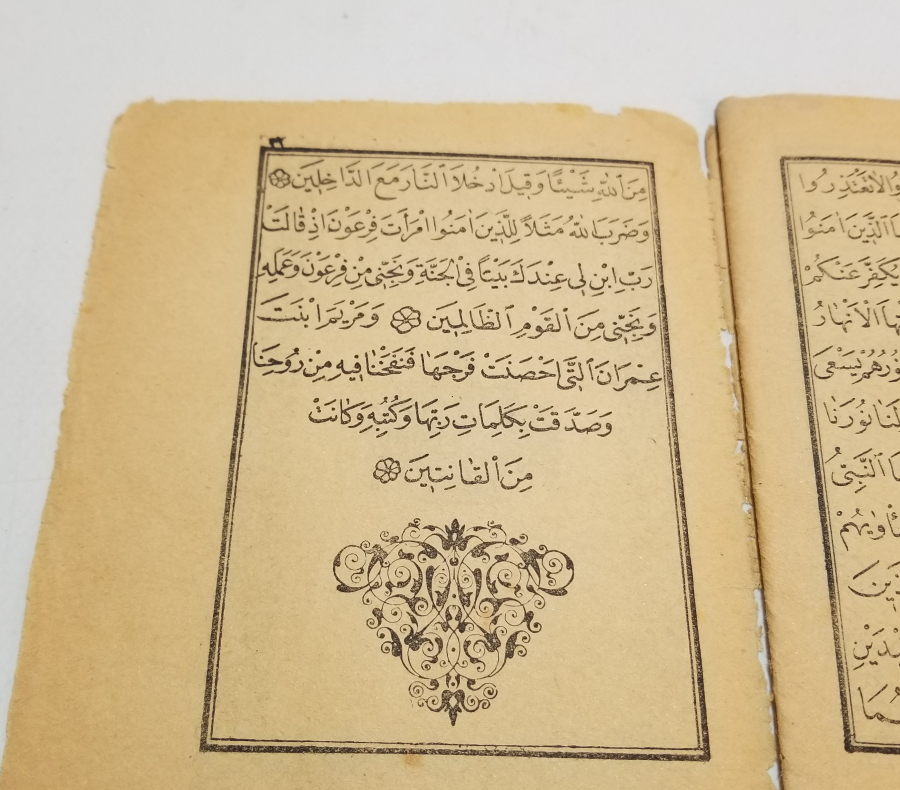 وُا لَا تَعْتَذِرُوا
ا الَّذِينَ اٰمَنُوا
يُكَفِّرَ عَنْكُمْ
هَا الْاَنْهَارُ
نُورُهُمْ يَسْعٰى
لَنَا نُورَنَا
ا النَّبِيُّ
مَأْوٰيهُمْ
ذِينَ
بْدَيْنِ
هُمَا
مِنَ اللّٰهِ شَيْئًا وَقِيلَ ادْخُلَا النَّارَ مَعَ الدَّاخِلِينَ
وَضَرَبَ اللّٰهُ مَثَلًا لِلَّذِينَ اٰمَنُوا امْرَاَتَ فِرْعَوْنَ اِذْ قَالَتْ
رَبِّ ابْنِ لِى عِنْدَكَ بَيْتًا فِى الْجَنَّةِ وَنَجِّنِى مِنْ فِرْعَوْنَ وَعَمَلِهِ
وَنَجِّنِى مِنَ الْقَوْمِ الظَّالِمِينَ وَمَرْيَمَ ابْنَتَ
عِمْرَانَ الَّتِى اَحْصَنَتْ فَرْجَهَا فَنَفَخْنَا فِيهِ مِنْ رُوحِنَا
وَصَدَّقَتْ بِكَلِمَاتِ رَبِّهَا وَكُتُبِهِ وَكَانَتْ
مِنَ الْقَانِتِينَ